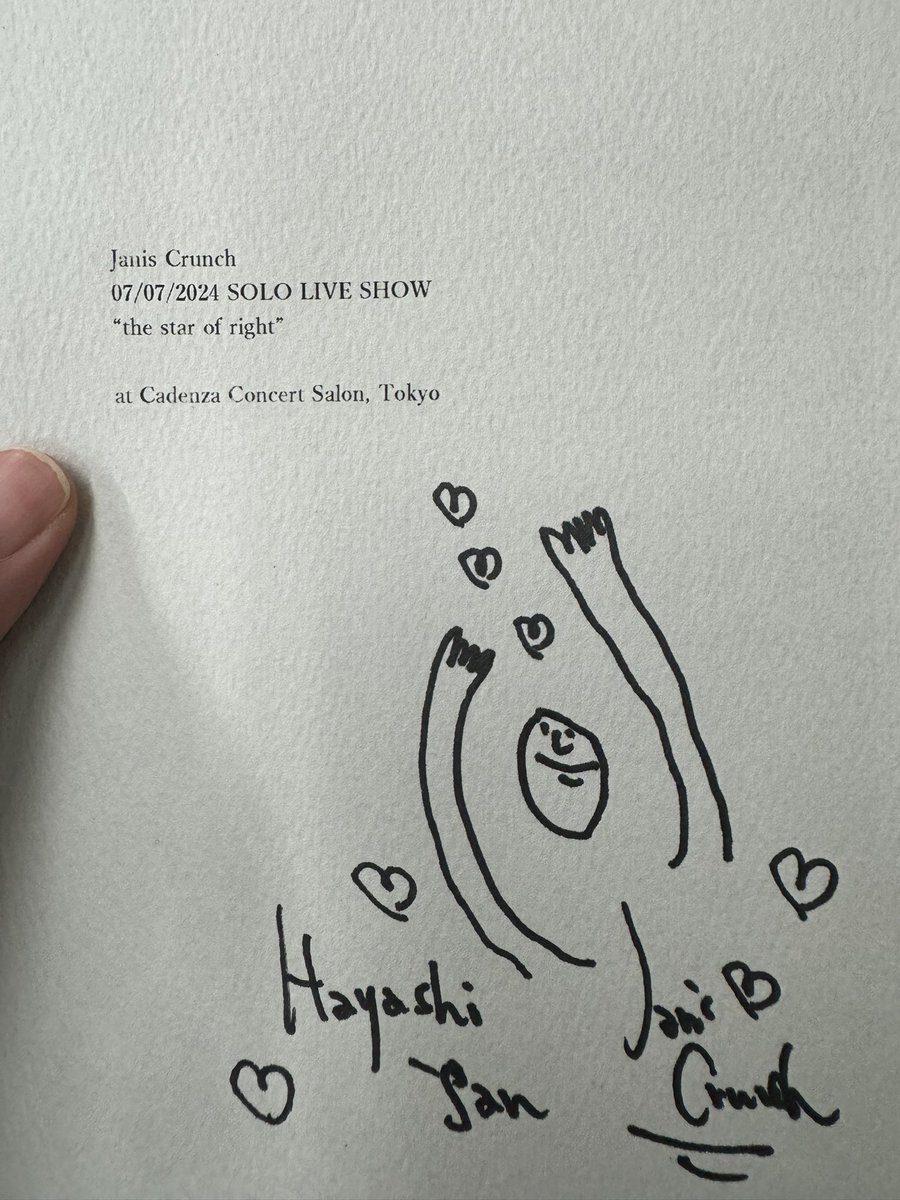 Janis Crunch
07/07/2024 SOLO LIVE SHOW
“the star of right”
at Cadenza Concert Salon, Tokyo
Hayashi
San
Janis
Crunch